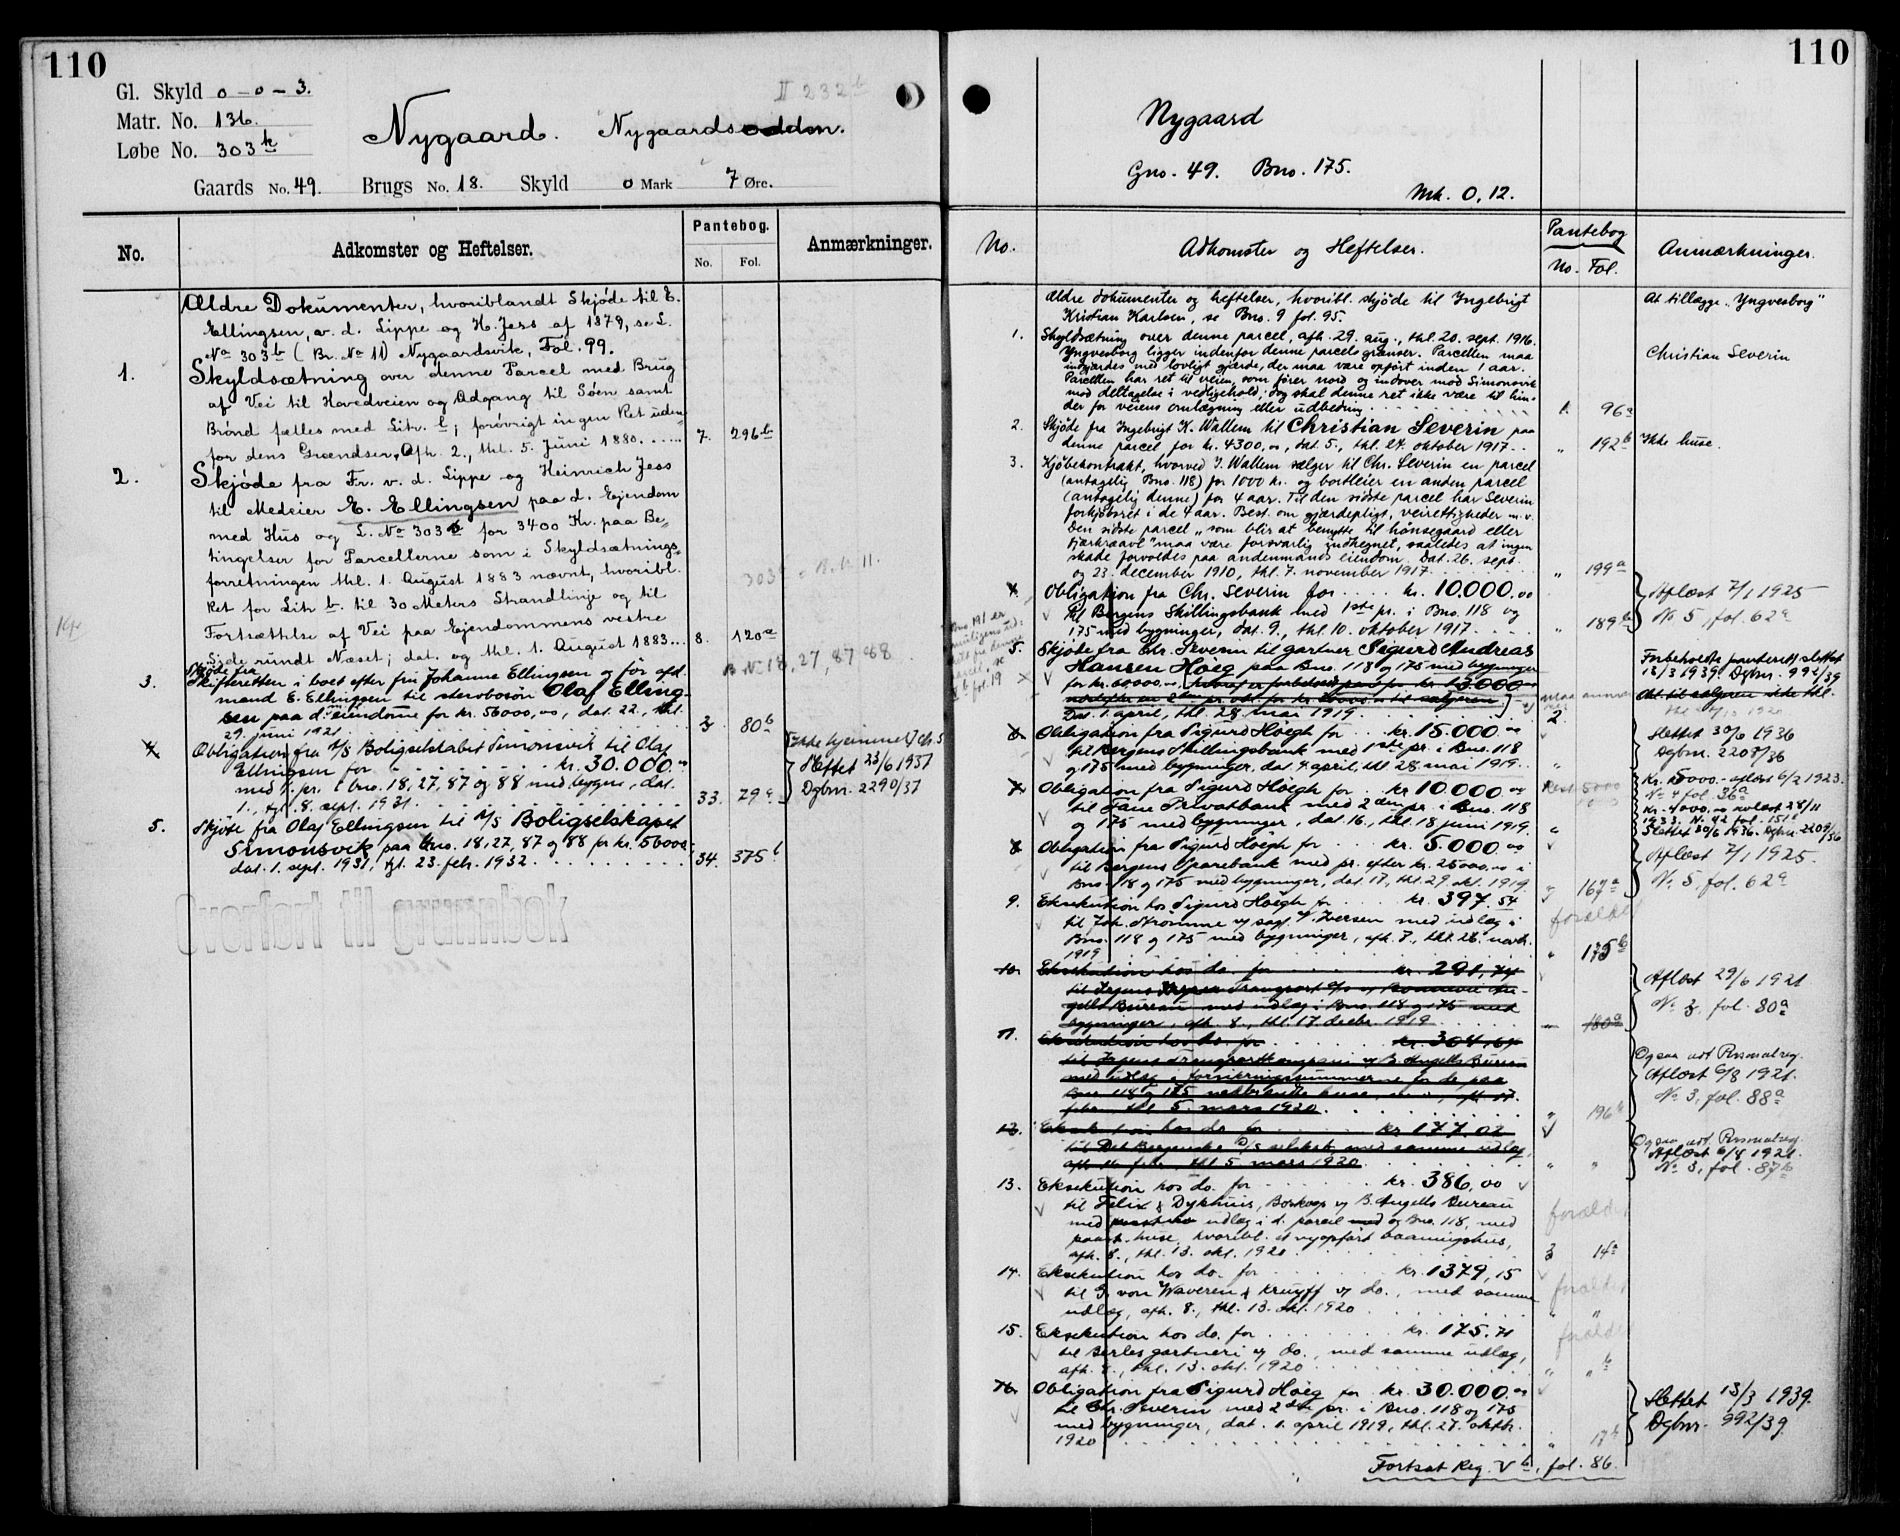 110
Gl. Skyld 0 - 0 - 3.
Matr. No. 136.
Løbe No. 303 k
II 232 b
Nygaard. Nygaardsodden.
Gaards No. 49. Brugs No. 18. Skyld 0 Mark 7 Øre.
No. Adkomster og Heftelser. Pantebog. No. Fol. Anmærkninger.
Ældre Dokumenter, hvoriblandt Skjøde til E.
Ellingsen, v. d. Lippe og H. Jess af 1879, se L.
No 303 b (Br. No 11) Nygaardsvik, Fol. 99.
1. Skyldsætning over denne Parcel med Brug
af Vei til Hovedveien og Adgang til Søen samt
Brønd fælles med Litr. l; forøvrigt ingen Ret uden-
for dens Grændser, Afh. 2., thl. 5. Juni 1880. 7. 296 b
2. Skjøde fra Fr. v. d. Lippe og Heinrich Jess
til Medeier E. Ellingsen paa d. Ejendom
med Hus og L. No 303 b for 3400 Kr. paa Be-
tingelser for Parcellerne som i Skyldsætnings-
forretningen thl. 1. August 1883 nævnt, hvoribl.
Ret for Litr b. til 30 Meters Strandlinje og til
Fortsættelse af Vei paa Ejendommens vestre
Side rundt Næset; dat. og thl. 1. August 1883... 8. 120 a
B No 18, 27, 87, 88
3. Skjøde fra
Skifteretten i boet efter fru Johanne Ellingsen og før afd.
mand E. Ellingsen til stervbosøn Olaf Elling-
sen paa d. eiendomme for kr. 56000,00, dat. 22., thl.
29. juni 1921 3 80 b
4. Obligation fra A/S Boligselskabet Simonsvik til Olaf
Ellingsen for kr. 30.000.00
med 1. pr. i bno. 18, 27, 87 og 88 med bygn., dat.
1., tgl. 8. sept. 1931. 33. 79 a
Slettet 23/6 1937
Dgbnr. 2290/37
5. Skjøte fra Olaf Ellingsen til A/S Boligselskapet
Simonsvik paa bno. 18, 27, 87 og 88 for kr. 56000,-
dat. 1. sept. 1931, tgl. 23. febr. 1932 34. 375 b
Overført til grunnbok
110
Nygaard
Gno. 49. Bno. 175.
Mk. 0,12.
No. Adkomster og Heftelser. Pantebog No. Fol. Anmærkninger.
Ældre dokumenter og heftelser, hvoribl. skjøde til Ingebrigt
Kristian Karlsen, se Bno. 9 fol. 95.
At tillægge "Yngvesborg"
1. Skyldsætning over denne parcel, afh. 29. aug., thl. 20. sept. 1916.
Yngvesborg ligger indenfor denne parcels grænser. Parcellen maa
indgjerdes med lovligt gjærde, der maa være opført inden 1 aar.
Parcellen har ret til veien, som fører nord og indover mod Simonsvik
mod deltagelse i vedligehold; dog skal denne ret ikke være til hin-
der for veiens omlægning eller utbedring 1. 96 a
Christian Severin
2. Skjøde fra Ingebrigt K. Wallem til Christian Severin paa
denne parcel for kr. 4300,00, dat. 5., thl. 24. oktober 1917. " 192 b
Ikke huse.
3. Kjøbekontrakt, hvorved I. Wallem sælger til Chr. Severin en parcel
(antagelig Bno. 118) for 1000 kr. og bortleier en anden parcel
(antagelig denne) for 4 aar. Til den sidste parcel har Severin
forkjøbsret i de 4 aar. Best. om gjærdepligt, veirettigheder m.v.
Den sidste parcel, "som blir at benytte til hønsegaard eller
fjærkraavl" maa være forsvarlig indhegnet, saaledes at ingen
skade forvoldes paa andenmands eiendom. Dat. 26. sept.
og 23. december 1910, thl. 7. november 1917 " 199 a
4. Obligation fra Chr. Severin for kr. 10.000.00
til Bergens Skillingsbank med 1ste pr. i Bno. 118 og
175 med bygninger, dat. 9., thl. 10. oktober 1917. " 189 b
Aflæst 7/1 1925
No 5, fol. 62 a
5. Skjøde fra Chr. Severin til gartner Sigurd Andreas
Hansen Høeg paa Bno. 118 og 175 med bygninger
for kr. 60000.00,
Dat. 1. april, thl. 28. mai 1919. 2
Forbeholdte panteret slettet
13/3 1939. Dgbnr. 992/39
6. Obligation fra Sigurd Høegh for kr. 15.000.00
til Bergens Skillingsbank med 1ste pr. i Bno. 118
og 175 med bygninger, dat. 4. april, thl. 28. mai 1919. "
Slettet 30/6 1936
Dgbnr. 2208/36
7. Obligation fra Sigurd Høegh for kr. 10.000.00
til Fane Privatbank med 2den pr. i Bno. 118
og 175 med bygninger, dat. 16., thl. 18. juni 1919. "
Kr. 5000.- aflæst 6/2 1923.
No 4 fol. 36 a
Slettet 30/6 1936. Dgbnr. 2209/36
8. Obligation fra Sigurd Høegh for kr. 5.000.00
til Bergens Sparebank med pr. efter kr. 25000,00 i
Bno. 118 og 175 med bygninger, dat. 17., thl. 29. okt. 1919 " 167 a
Aflæst 7/1 1925.
No 5, fol. 62 a
9. Eksekution hos Sigurd Høegh for kr. 397.54
til Joh. Strømme med udlæg i
Bno. 118 og 175 med bygninger, afh. 7., thl. 26. novb.
1919 " 175 b
forældet
10. Eksekution hos do. for kr. 291,74
bygninger, afh. 8., thl. 17. decbr. 1919 " 180 a
Aflæst 29/6 1921
No 3, fol. 80 a
11. Eksekution hos do. for kr. 304,64
febr. thl. 5. mars 1920. " 196 b
Ogsaa udt. Personalreg.
Aflæst 6/8 1921.
No 3, fol. 88 a
12. Eksekution hos do. for kr. 177.02
til Det Bergenske D/S selskab, med samme udlæg,
febr., thl. 5. mars 1920. " "
Ogsaa udt. Personalreg.
Aflæst 6/8 1921.
No 3, fol. 87 b
13. Eksekution hos do. for kr. 386,00
til Felix & Dykhuis, Boskoop v/ B. Angells Bureau
med udlæg i d. parcel og Bno. 118, med
paast. huse, hvoribl. et nyopført vaaningshus,
afh. 8., thl. 13. okt. 1920. 3 14 a
forældet
14. Eksekution hos do. for kr. 1379,15
til G. von Waveren & Kruyff v/ do., med samme
udlæg, afh. 8., thl. 13. okt. 1920 " "
forældet
15. Eksekution hos do. for kr. 175.71
til Berles gartneri v/ do., med samme udlæg,
afh. 8., thl. 13. okt. 1920 " " b
forældet
16. Obligation fra Sigurd Høeg for kr. 30.000.00
til Chr. Severin med 2den pr. i Bno. 118 og 175
med bygninger, dat. 1. april 1919, thl. 27. oktbr.
1920 " 17 b
Slettet 13/3 1939.
Dgbnr. 992/39
Fortsat Reg. V b, fol. 86.